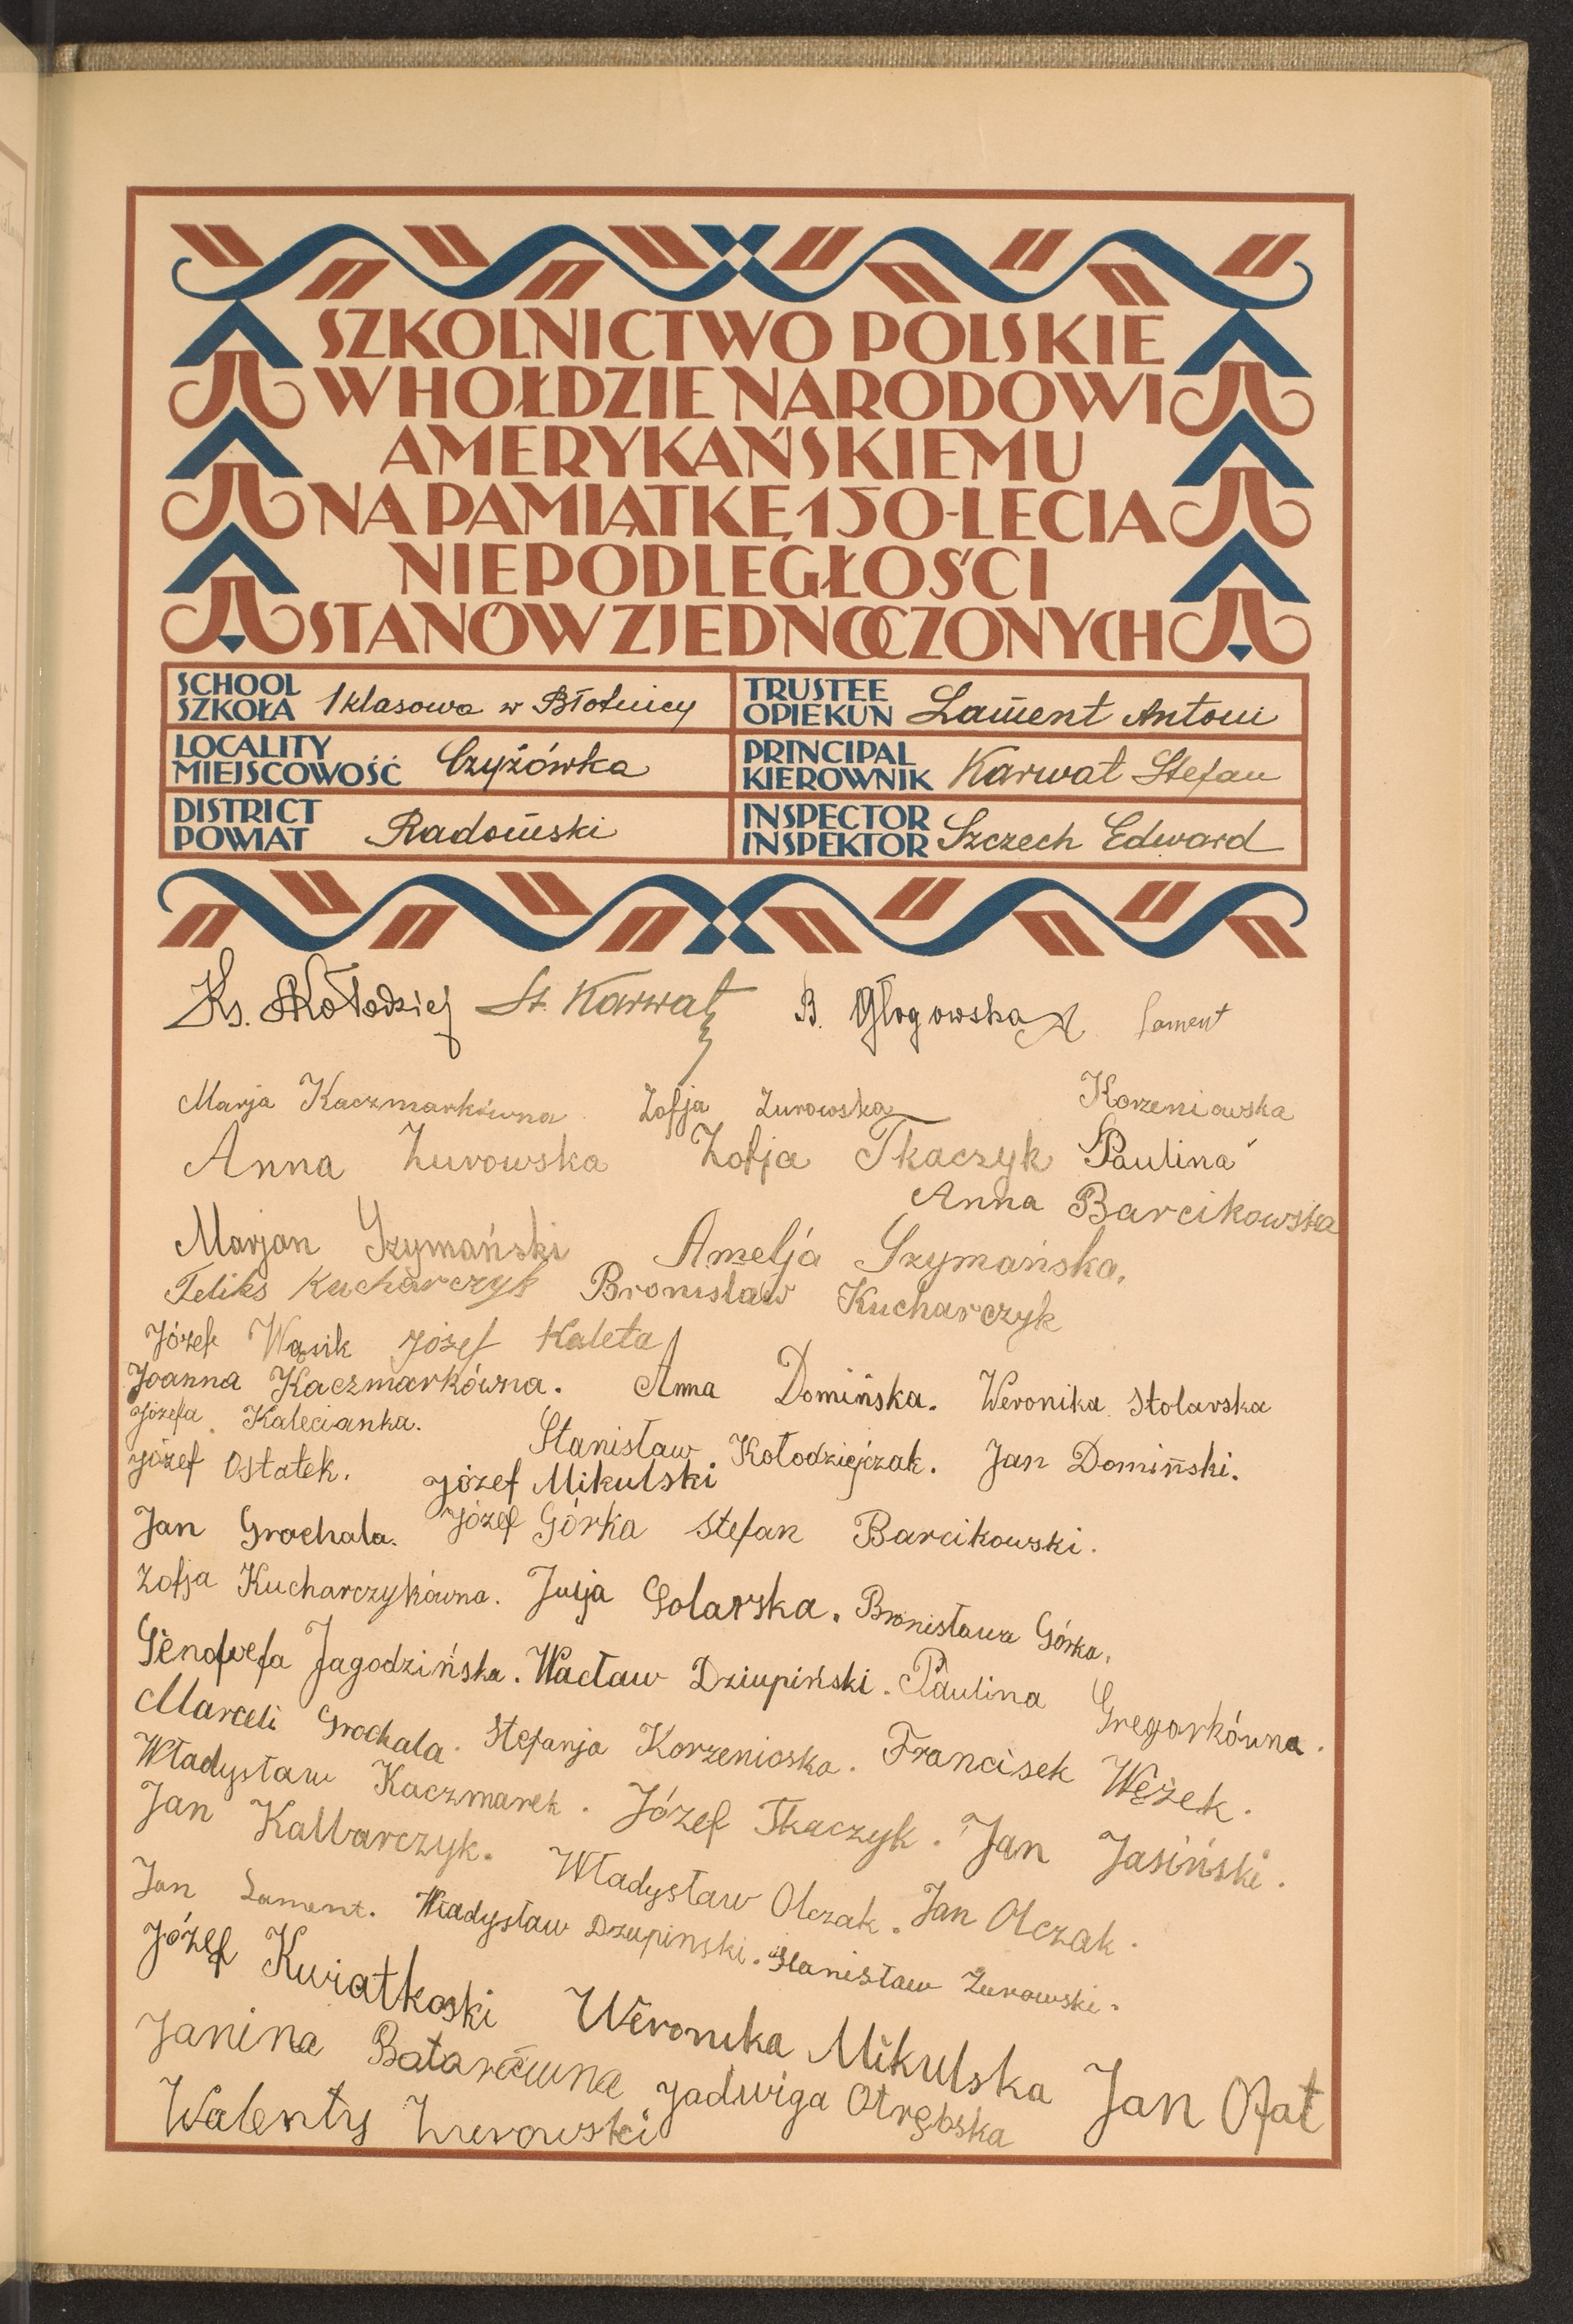 SZKOLNICTWO POLSKIE
W HOŁDZIE NARODOWI
AMERYKAŃSKIEMU
NA PAMIĄTKĘ 150-LECIA
NIEPODLEGŁOŚCI
STANÓW ZJEDNOCZONYCH
SCHOOL
SZKOŁA 1 klasowa w Błotnicy
TRUSTEE
OPIEKUN Lament Antoni
LOCALITY
MIEJSCOWOŚĆ Czyżówka
PRINCIPAL
KIEROWNIK Karwat Stefan
DISTRICT
POWIAT Radomski
INSPECTOR
INSPEKTOR Szczech Edward
Ks. Kołodziej St. Karwat B. Głogowska A. Lament
Marja Kaczmarkówna Zofja Żurowska Korzeniowska
Anna Żurowska Zofja Tkaczyk Paulina
Anna Barcikowska
Marjan Szymański Amelja Szymańska.
Feliks Kucharczyk Bronisław Kucharczyk
Józef Wąsik Józef Kaleta
Joanna Kaczmarkówna. Anna Domińska. Weronika Stolarska
Józefa Kalecianka. Stanisław Kołodziejczak. Jan Domiński.
Józef Ostatek. Józef Mikulski
Jan Grochala. Józef Górka Stefan Barcikowski.
Zofja Kucharczykówna. Julja Golarska. Bronisława Górka.
Genofwefa Jagodzińska. Wacław Dziupiński. Paulina Gregorkówna.
Marceli Grochala. Stefanja Korzenioska. Francisek Wężek.
Władysław Kaczmarek. Józef Tkaczyk. Jan Jasiński.
Jan Kalbarczyk. Władysław Olczak. Jan Olczak.
Jan Lament. Władysław Dzupinski. Stanisław Żurowski.
Józef Kwiatkoski Weronika Mikulska Jan Ofat
Janina Batarówna Jadwiga Otrębska
Walenty Żurowski